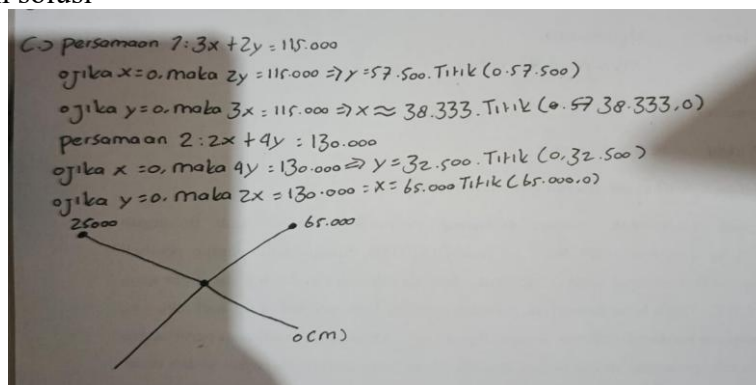 n solusi
C.) persamaan 1: 3x + 2y = 115.000
o jika x = 0. maka 2y = 115.000 => y = 57.500. Titik (0.57.500)
o jika y = 0. maka 3x = 115.000 => x ≈ 38.333. Titik (38.333,0)
persamaan 2: 2x + 4y = 130.000
o jika x = 0, maka 4y = 130.000 => y = 32.500. Titik (0,32.500)
o jika y = 0. maka 2x = 130.000 = x = 65.000 Titik (65.000,0)
25000
65.000
0 (m)